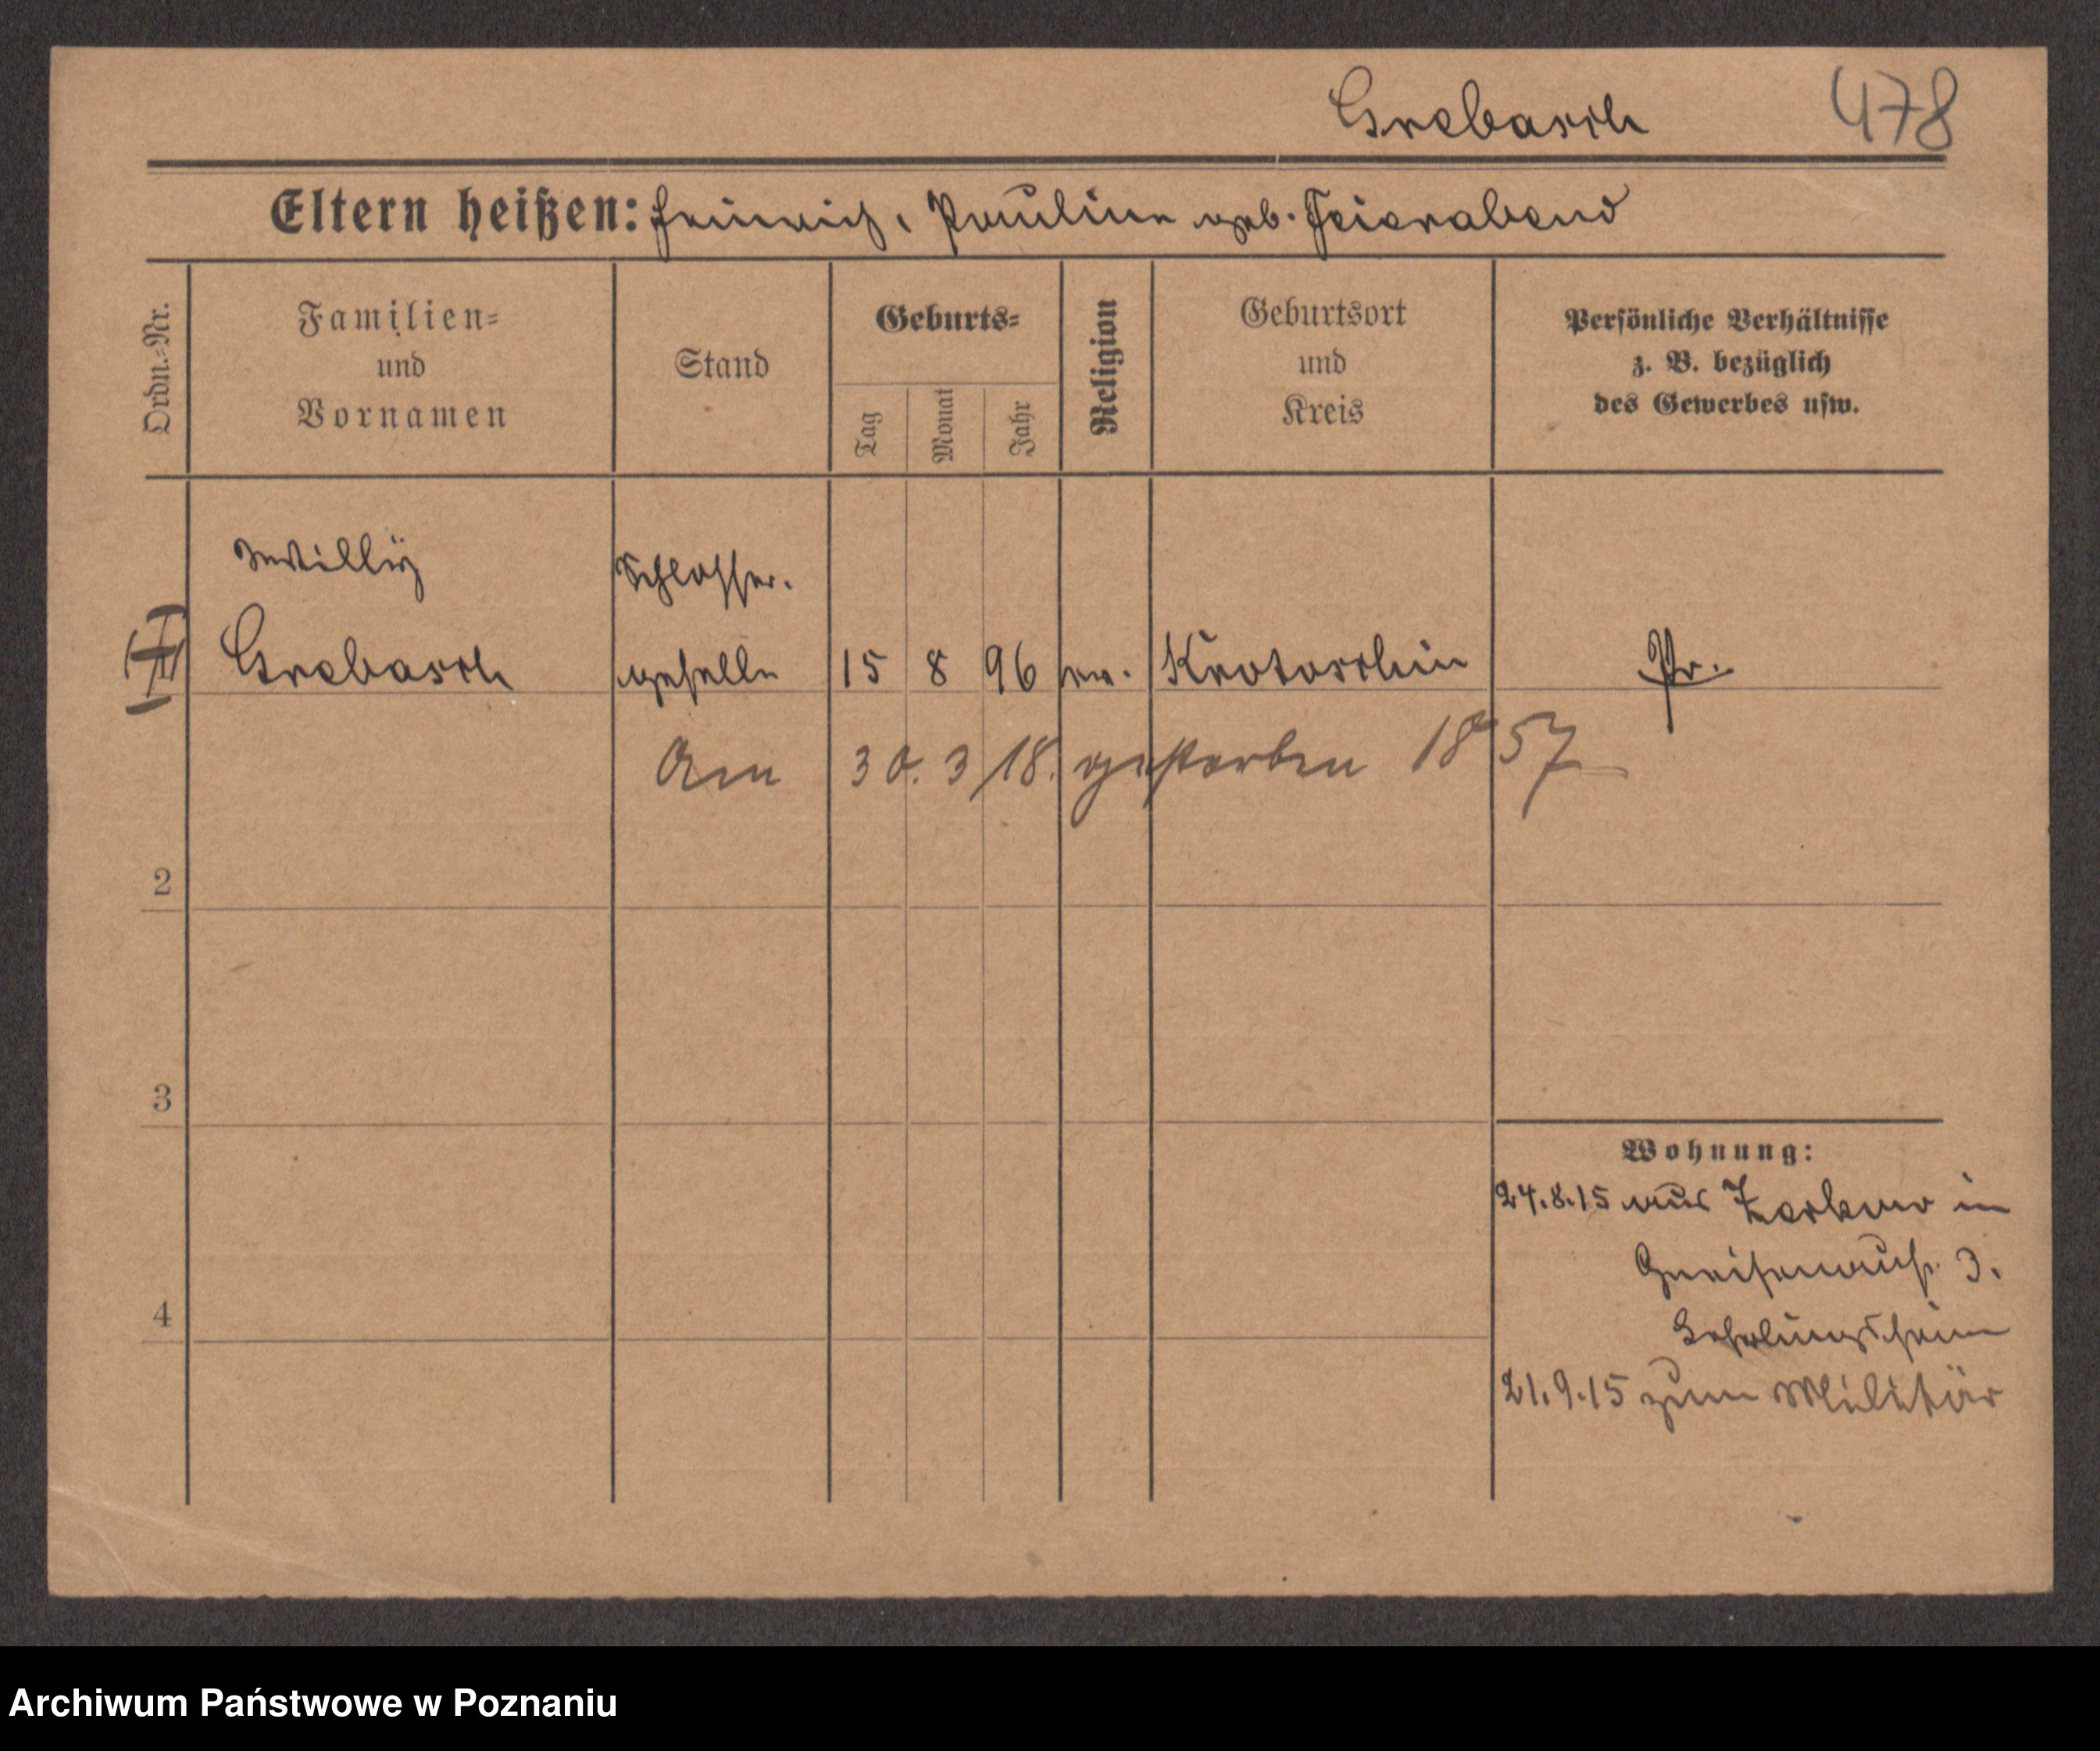 Grebasch 478
Eltern heißen: Heinrich, Pauline geb. Feierabend
Ordn.-Nr.
Familien-
und
Vornamen
Stand
Geburts-
Tag
Monat
Jahr
Religion
Geburtsort
und
Kreis
Persönliche Verhältnisse
z. B. bezüglich
des Gewerbes usw.
Willy Schlosser-
Grebasch geselle 15 8 96 ev. Krotoschin Pr.
Am 30. 3 18. gestorben 1857
2
3
4
Wohnung:
24.8.15 aus Zerkow in
Gneisenaustr. 3.
Erholungsheim
21.9.15 zum Militär
Archiwum Państwowe w Poznaniu